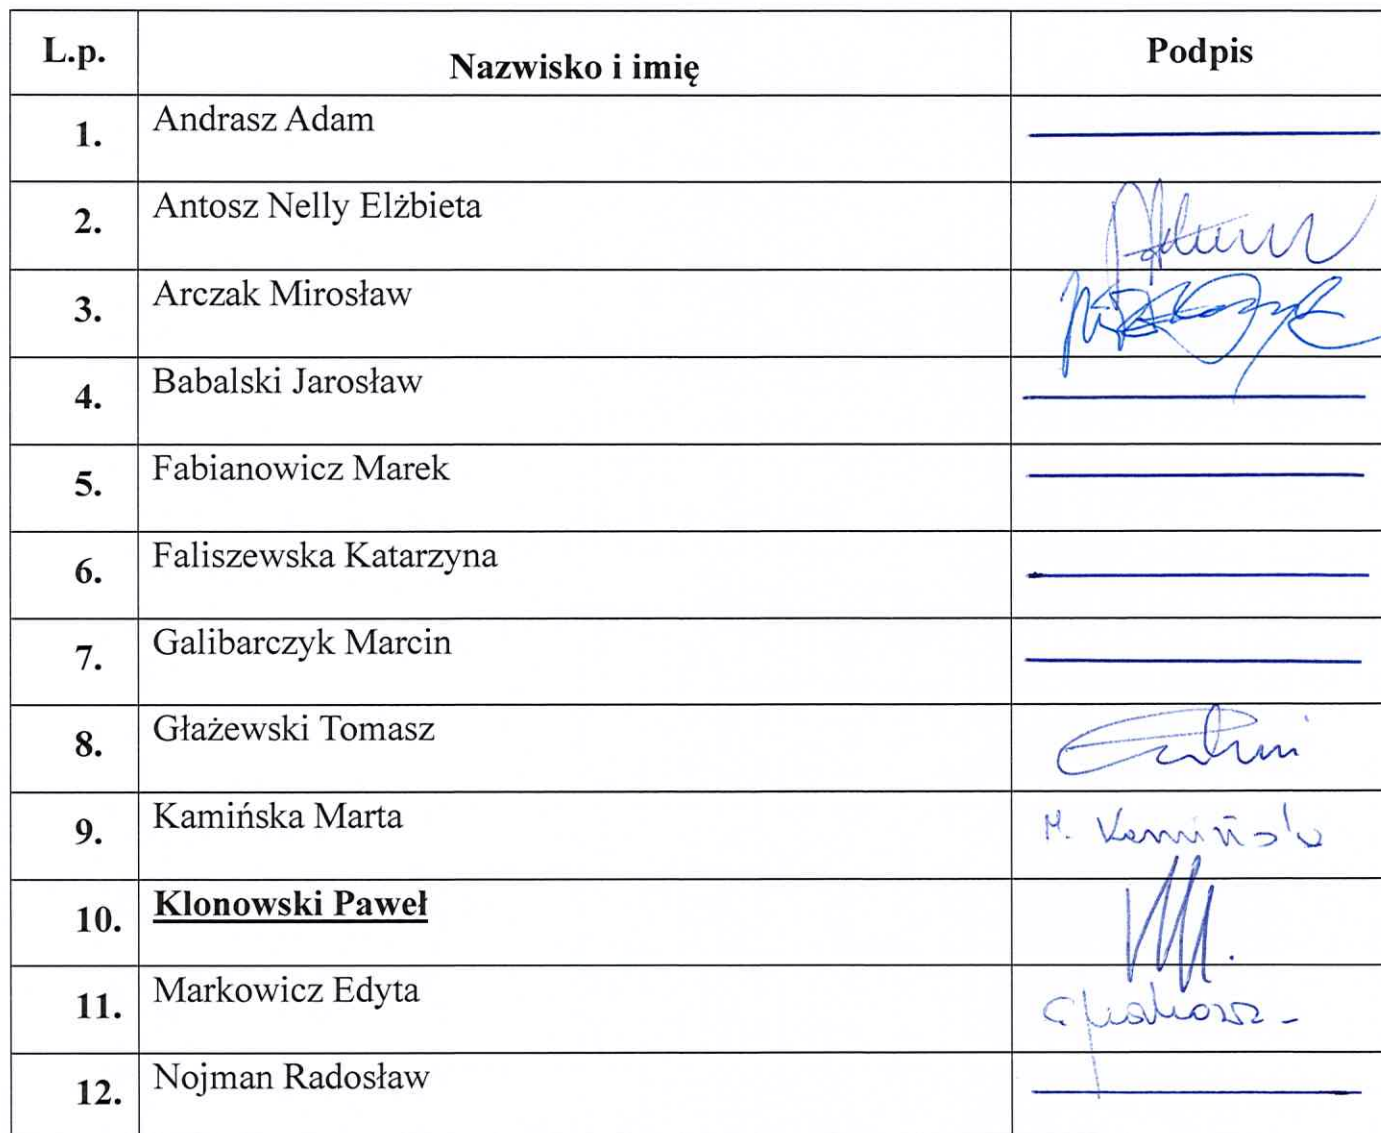 L.p. Nazwisko i imię Podpis
1. Andrasz Adam
2. Antosz Nelly Elżbieta
3. Arczak Mirosław
4. Babalski Jarosław
5. Fabianowicz Marek
6. Faliszewska Katarzyna
7. Galibarczyk Marcin
8. Głażewski Tomasz
9. Kamińska Marta M. Kamińska
10. Klonowski Paweł
11. Markowicz Edyta
12. Nojman Radosław